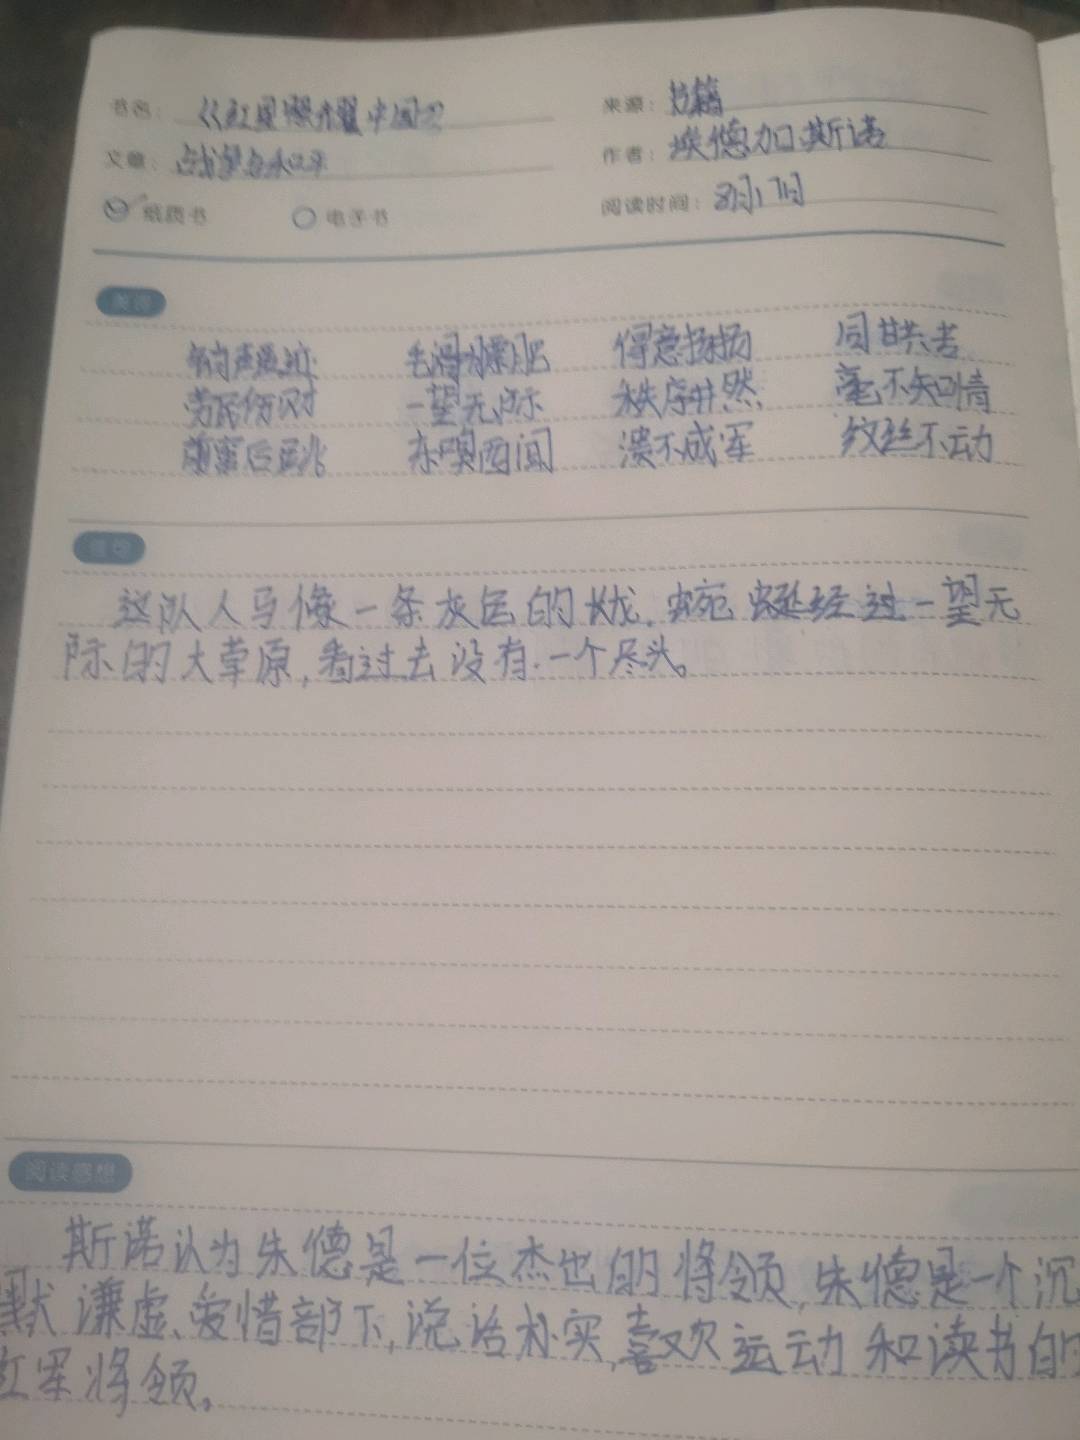 书名：《红星照耀中国》 来源：书籍
文章：战争与和平 作者：埃德加·斯诺
纸质书 电子书 阅读时间：8月17日
美词
销声匿迹 毛滑膘肥 得意扬扬 同甘共苦
劳民伤财 一望无际 秩序井然 毫不知情
前面后兆 亦嗅西闻 溃不成军 纹丝不动
佳句
这队人马像一条灰色的长龙，蜿蜒经过一望无
际的大草原，看过去没有一个尽头。
阅读感想
斯诺认为朱德是一位杰出的将领，朱德是一个沉
默谦虚、爱惜部下，说话朴实，喜欢运动和读书的
红军将领。